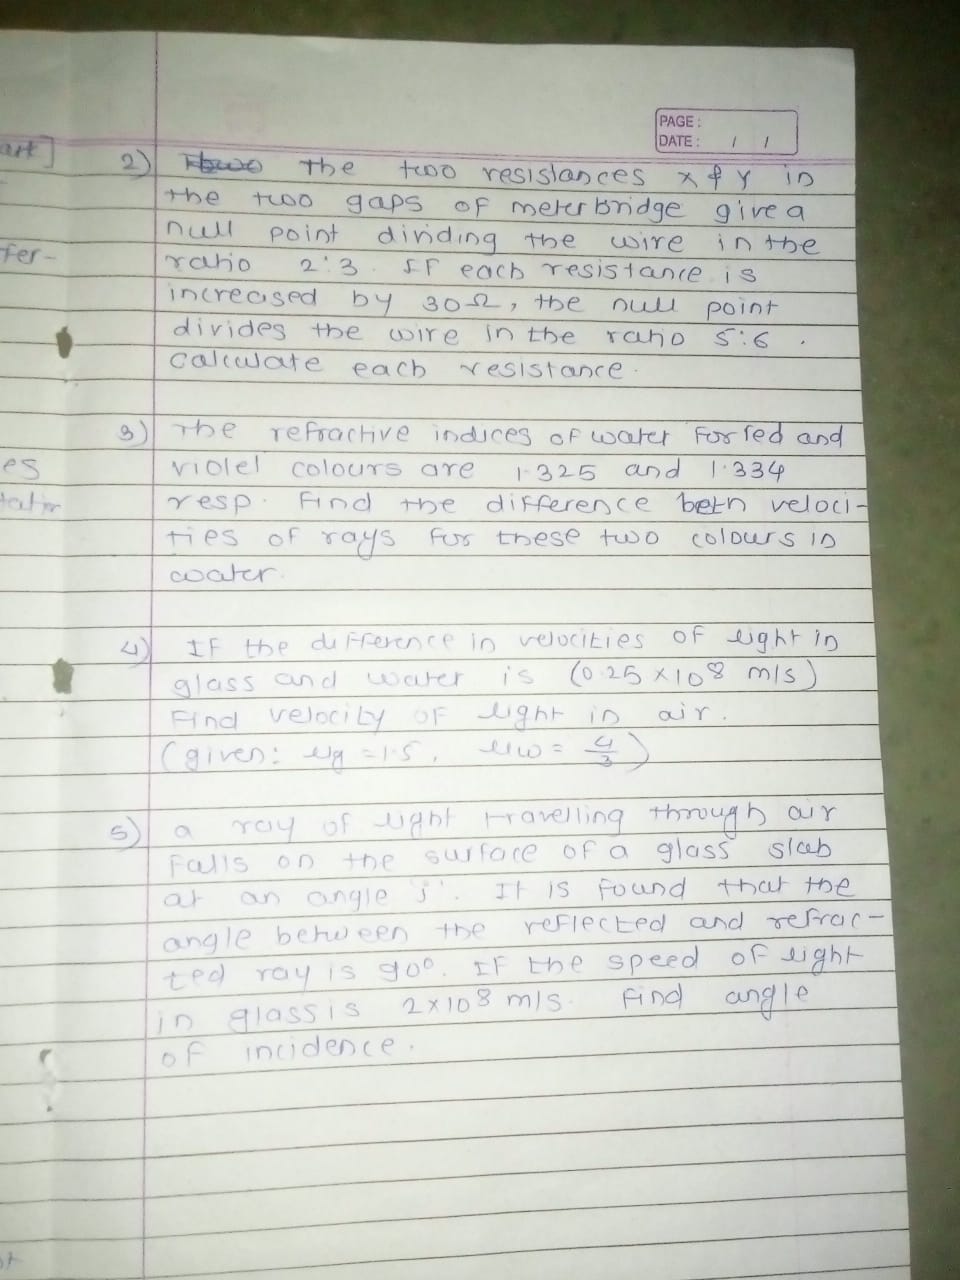 PAGE :
DATE : / /
art]
2) the two resistances x & y in
the two gaps of meter bridge give a
null point dividing the wire in the
fer-
ratio 2:3. If each resistance is
increased by 30Ω, the null point
divides the wire in the ratio 5:6.
calculate each resistance.
3) The refractive indices of water for red and
es
violet colours are 1.325 and 1.334
resp. Find the difference betn veloci-
ties of rays for these two colours in
water.
4) If the difference in velocities of light in
glass and water is (0.25 x 10^8 m/s)
Find velocity of light in air.
(given: μg = 1.5, μw = 4/3)
5) a ray of light travelling through air
falls on the surface of a glass slab
at an angle 'i'. It is found that the
angle between the reflected and refrac-
ted ray is 90°. If the speed of light
in glass is 2x10^8 m/s. Find angle
of incidence.